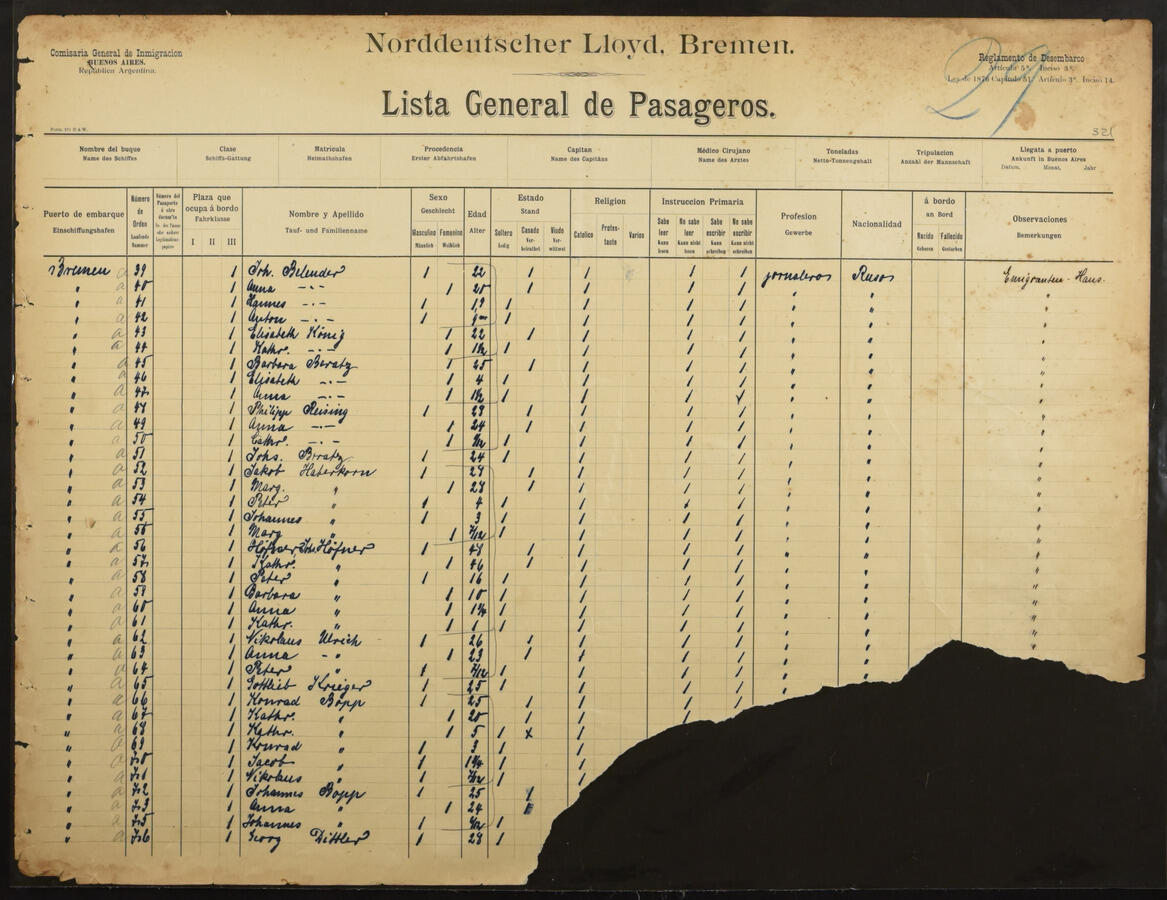 Norddeutscher Lloyd, Bremen.
Comisaria General de Inmigracion
BUENOS AIRES.
República Argentina.
Reglamento de Desembarco
Artículo 5º Inciso 3º
Ley de 1876 Capítulo 51 Artículo 3º Inciso 14.
27
321
Lista General de Pasageros.
Nombre del buque Clase Matricula Procedencia Capitan Médico Cirujano Toneladas Tripulacion Llegata a puerto
Name des Schiffes Schiffs-Gattung Heimathshafen Erster Abfahrtshafen Name des Capitäns Name des Arztes Netto-Tonnengehalt Anzahl der Mannschaft Ankunft in Buenos Aires
Datum, Monat, Jahr
Puerto de embarque Número de Orden Plaza que ocupa á bordo Nombre y Apellido Sexo Edad Estado Religion Instruccion Primaria Profesion Nacionalidad á bordo Observaciones
Einschiffungshafen Laufende Nummer Fahrklasse Tauf- und Familienname Geschlecht Alter Stand Gewerbe an Bord Bemerkungen
I II III Masculino Femenino Soltero Casado Viudo Catolico Protestante Varios Sabe leer No sabe leer Sabe escribir No sabe escribir Nacido Fallecido
Männlich Weiblich Ledig Verheirathet Verwittwet Kann lesen Kann nicht lesen Kann schreiben Kann nicht schreiben Geboren Gestorben
Bremen a 39 1 Joh. Belender 1 22 1 1 1 1 jornaleros Rusos Emigranten-Haus.
" a 40 1 Anna -"- 1 20 1 1 1 1 " " "
" a 41 1 Hannes -"- 1 19 1 1 1 1 " " "
" a 42 1 Anton -"- 1 1 1 1 1 " " "
" a 43 1 Elisabeth König 1 22 1 1 1 1 " " "
" a 44 1 Kathr. -"- 1 1½ 1 1 1 1 " " "
" a 45 1 Barbara Beratz 1 25 1 1 1 1 " " "
" a 46 1 Elisabeth -"- 1 4 1 1 1 1 " " "
" a 47 1 Anna -"- 1 1½ 1 1 1 1 " " "
" a 48 1 Philipp Reising 1 23 1 1 1 1 " " "
" a 49 1 Anna -"- 1 24 1 1 1 1 " " "
" a 50 1 Cathr. -"- 1 1 1 1 1 " " "
" a 51 1 Johs. Beratz 1 24 1 1 1 1 " " "
" a 52 1 Jakob Haterkorn 1 29 1 1 1 1 " " "
" a 53 1 Marg. " 1 28 1 1 1 1 " " "
" a 54 1 Peter " 1 4 1 1 1 1 " " "
" a 55 1 Johannes " 1 3 1 1 1 1 " " "
" a 1 Marg " 1 1 1 1 1 " " "
" a 56 1 Höfner 1 48 1 1 1 1 " " "
" a 57 1 Kathr. " 1 46 1 1 1 1 " " "
" a 58 1 Peter " 1 16 1 1 1 1 " " "
" a 59 1 Barbara " 1 10 1 1 1 1 " " "
" a 60 1 Anna " 1 1 1 1 1 " " "
" a 61 1 Kathr. " 1 1 1 1 1 1 " " "
" a 62 1 Nikolaus Ulrich 1 26 1 1 1 1 " " "
" a 63 1 Anna -"- 1 23 1 1 1 1 " "
" a 64 1 Peter " 1 1 1 1 1 " "
" a 65 1 Gottlieb Krieger 1 25 1 1 1 1 "
" a 66 1 Konrad Bopp 1 25 1 1 1 1
" a 67 1 Kathr. " 1 20 1 1 1 1
" a 68 1 Kathr. " 1 5 1 x 1
" a 69 1 Konrad " 1 3 1 1
" a 70 1 Jacob " 1 1 1
" a 71 1 Nikolaus " 1 1 1
" a 72 1 Johannes Bopp 1 25 1
" a 73 1 Anna " 1 24 1
" a 75 1 Johannes " 1 1
" a 76 1 Georg Dittler 1 28 1